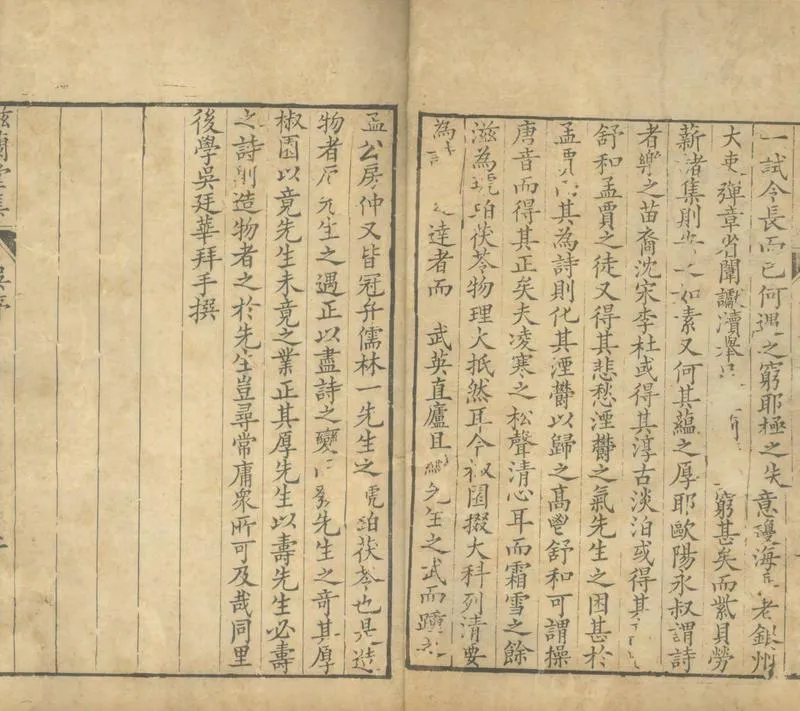 一試令長而已何遇之窮耶極之失意邊海 老銀州
大吏彈章省闈讞瀆舉 窮甚矣而紫貝勞
薪諸集則 如素又何其蘊之厚耶歐陽永叔謂詩
者樂之苗裔沈宋李杜或得其淳古淡泊或得其
舒和孟賈之徒又得其悲愁湮鬱之氣先生之困甚於
孟賈 其為詩則化其湮鬱以歸之高 舒和可謂操
唐音而得其正矣夫凌寒之松聲清心耳而霜雪之餘
滋為琥珀茯苓物理大抵然耳今椒園掇大科列清要
為 達者而 武英直廬且 先生之武而踵
孟公房仲又皆冠弁儒林一先生之琥珀茯苓也是造
物者 先生之遇正以盡詩之變 先生之奇其厚
椒園以竟先生未竟之業正其厚先生以壽先生必壽
之詩則造物者之於先生豈尋常庸衆所可及哉同里
後學吳廷華拜手撰
蘭堂集
吳序